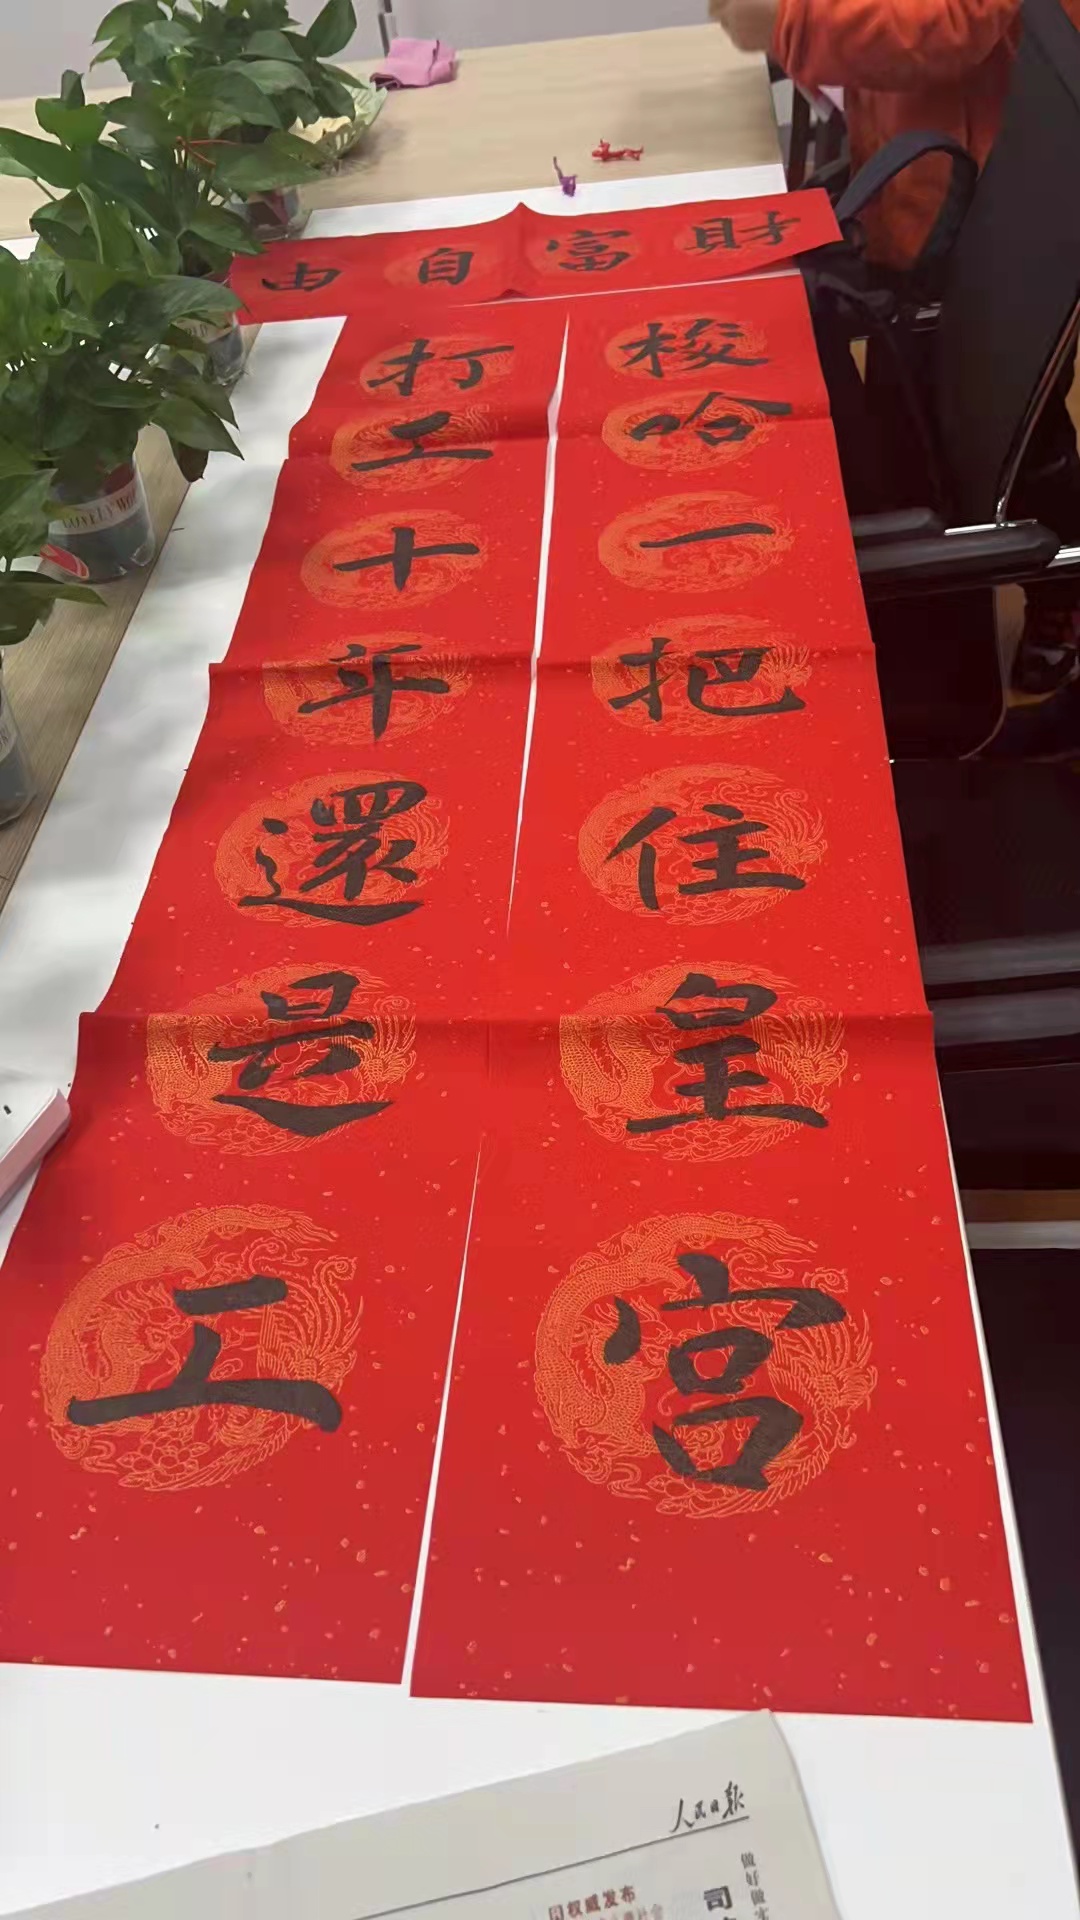 財富自由
梭哈一把住皇宫
打工十年還是工
人民日报
权威发布
做好做实
司